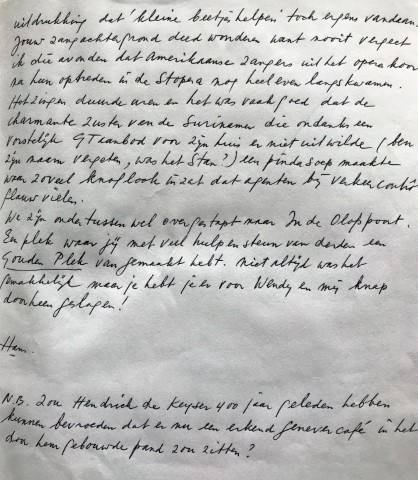 uitdrukking dat 'kleine beetjes helpen' toch ergens vandaan.
Jouw zangachtergrond deed wonderen want nooit vergeet
ik die avonden dat Amerikaanse zangers uit het operakoor
na hun optreden in de Stopera nog heel even langskwamen.
Het zingen duurde uren en het was vaak goed dat de
charmante zuster van de Surinamer die ondanks een
vorstelijk GTaanbod voor zijn huis er niet uit wilde (ben
zijn naam vergeten, was het Stan?) een pindasoep maakte
waar zoveel knoflook in zat dat agenten bij verkeercontrôle
flauw vielen.
We zijn ondertussen wel overgestapt naar In de Olofspoort.
Een plek waar jij met veel hulp en steun van derden een
Gouden Plek van gemaakt hebt. Niet altijd was het
gemakkelijk maar je hebt je er voor Wendy en mij knap
doorheen geslagen!
Hans.
N.B. Zou Hendrick de Keyser 400 jaar geleden hebben
kunnen bevroeden dat er nu een erkend Genever café in het
door hem gebouwde pand zou zitten?